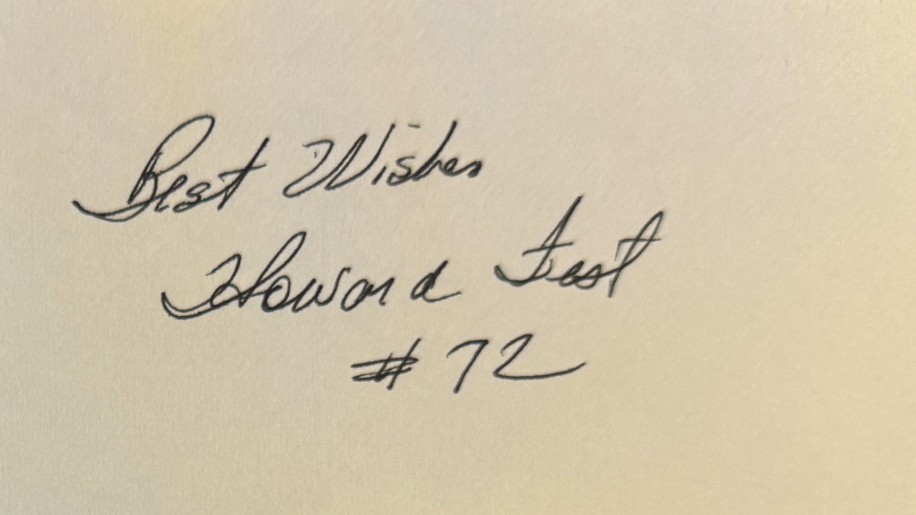 Best Wishes
Howard Fest
# 72